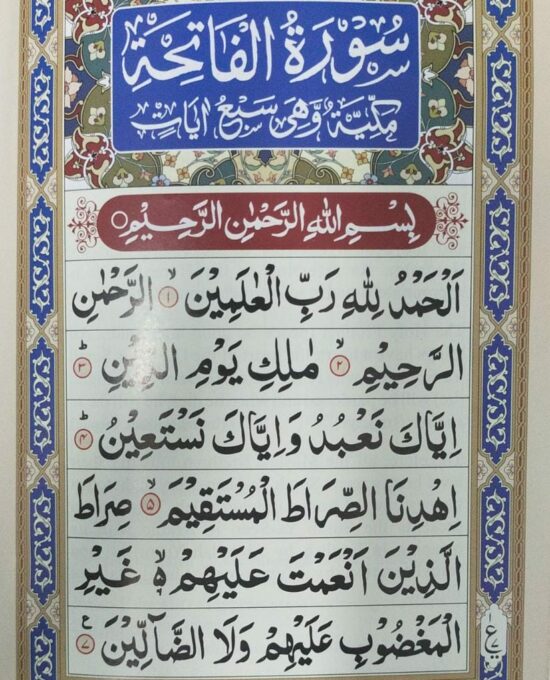 سُوْرَةُ الْفَاتِحَةِ
مَكِّيَّةٌ وَّهِيَ سَبْعُ اٰيَاتٍ
بِسْمِ اللهِ الرَّحْمٰنِ الرَّحِيْمِ ○
اَلْحَمْدُ لِلّٰهِ رَبِّ الْعٰلَمِيْنَ ۙ ۱ الرَّحْمٰنِ
الرَّحِيْمِ ۙ ۲ مٰلِكِ يَوْمِ الدِّيْنِ ؕ ۳
اِيَّاكَ نَعْبُدُ وَاِيَّاكَ نَسْتَعِيْنُ ؕ ۴
اِهْدِنَا الصِّرَاطَ الْمُسْتَقِيْمَ ۙ ۵ صِرَاطَ
الَّذِيْنَ اَنْعَمْتَ عَلَيْهِمْ ۙ۬ ە غَيْرِ
الْمَغْضُوْبِ عَلَيْهِمْ وَلَا الضَّآلِّيْنَ ۷ ع
۱
ع
۷